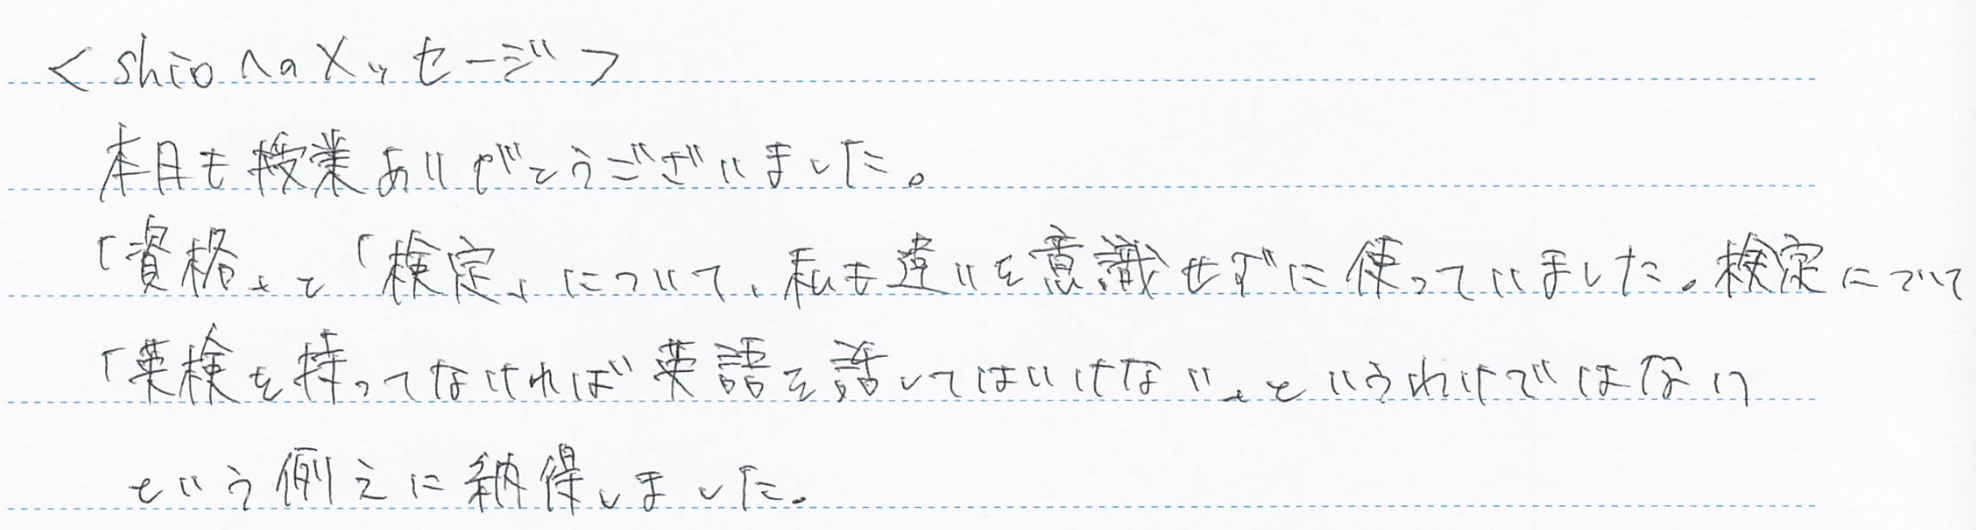 <shioへのメッセージ>
本日も授業ありがとうございました。
「資格」と「検定」について、私も違いを意識せずに使っていました。検定について
「英検を持ってなければ英語を話してはいけない」というわけではない
という例えに納得しました。